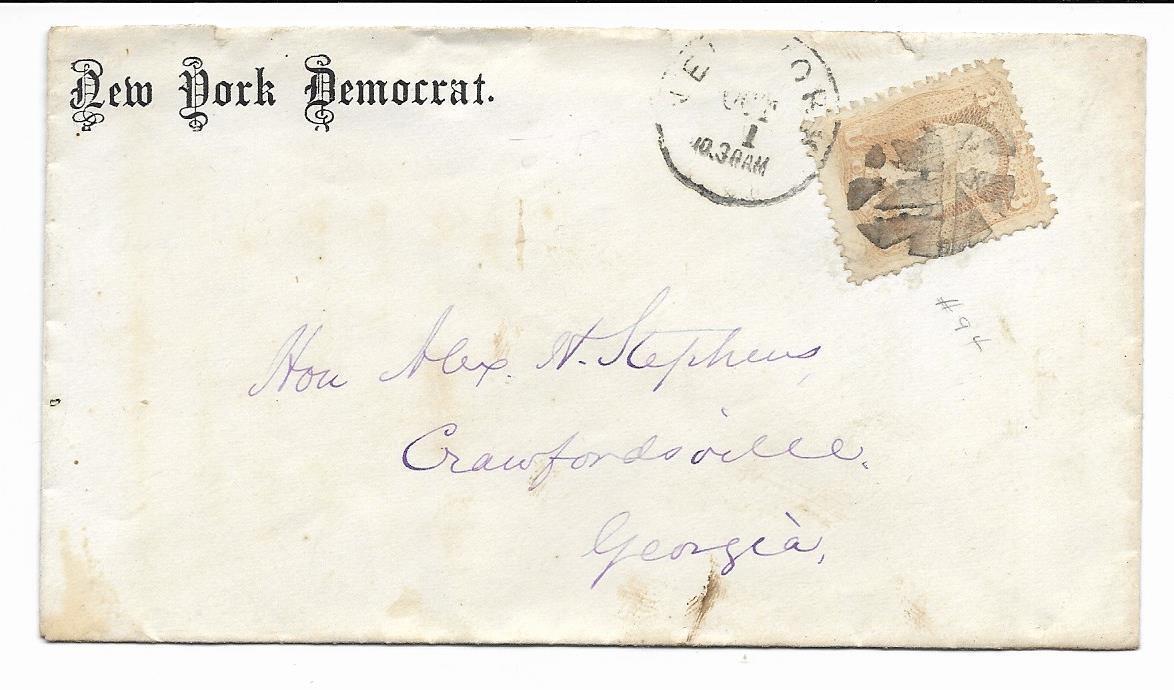 New York Democrat.
NEW YORK
OCT
1
10.30AM
U
3
3
#94
Hon Alex. H. Stephens,
Crawfordsville.
Georgia,